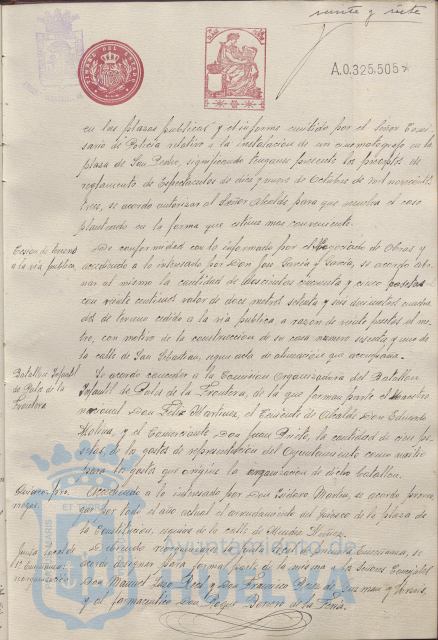 veinte y siete
TIMBRE DEL ESTADO
A.0.325.505*
en las plazas públicas y el informe emitido por el Señor Comi-
sario de Policía relativo a la instalación de un cinematógrafo en la
plaza de San Pedro, significando tengan presente los preceptos de
reglamento de Espectáculos de diez y nueve de Octubre de mil novecientos
trece, se acordó autorizar al Señor Alcalde para que resuelva el caso
planteado en la forma que estime más conveniente.
Cesión de terreno
a la vía pública
De conformidad con lo informado por el Negociado de Obras y
accediendo a lo interesado por Don José García y García, se acordó abo-
nar al mismo la cantidad de doscientas cincuenta y cinco pesetas
con veinte céntimos valor de doce metros setenta y seis decímetros cuadra-
dos de terreno cedido a la vía pública, a razón de veinte pesetas el me-
tro, con motivo de la construcción de su casa número sesenta y uno de
la calle de San Sebastián, según acta de alineación que acompaña.
Batallón Infantil
de Palos de la
Frontera
Se acordó conceder a la Comisión Organizadora del Batallón
Infantil de Palos de la Frontera, de la que forman parte el Maestro
nacional Don Félix Martínez, el Teniente de Alcalde Don Eduardo
Molina, y el Comerciante Don Juan Prieto, la cantidad de cien pe-
setas, de los gastos de representación del Ayuntamiento como auxilio
para los gastos que origine la organización de dicho Batallón.
Accediendo a lo interesado por Don Isidoro Martín, se acordó prorro-
gar por todo el año actual el arrendamiento del kiosco de la plaza de
la Constitución, esquina de la calle de Méndez Núñez.
Junta local de
1ª Enseñanza
reorganización
Debiendo reorganizarse la Junta local de 1ª Enseñanza, se
acordó designar para formar parte de la misma a los Señores Concejales
Don Manuel y Don Francisco de Guzmán
y el farmacéutico Don Roque Borrero de la Feria.
Ayuntamiento de
HUELVA